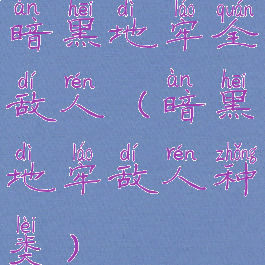 àn hēi dì láo quán
暗黑地牢全
dí rén àn hēi
敌人（暗黑
dì láo dí rén zhǒng
地牢敌人种
lèi
类）